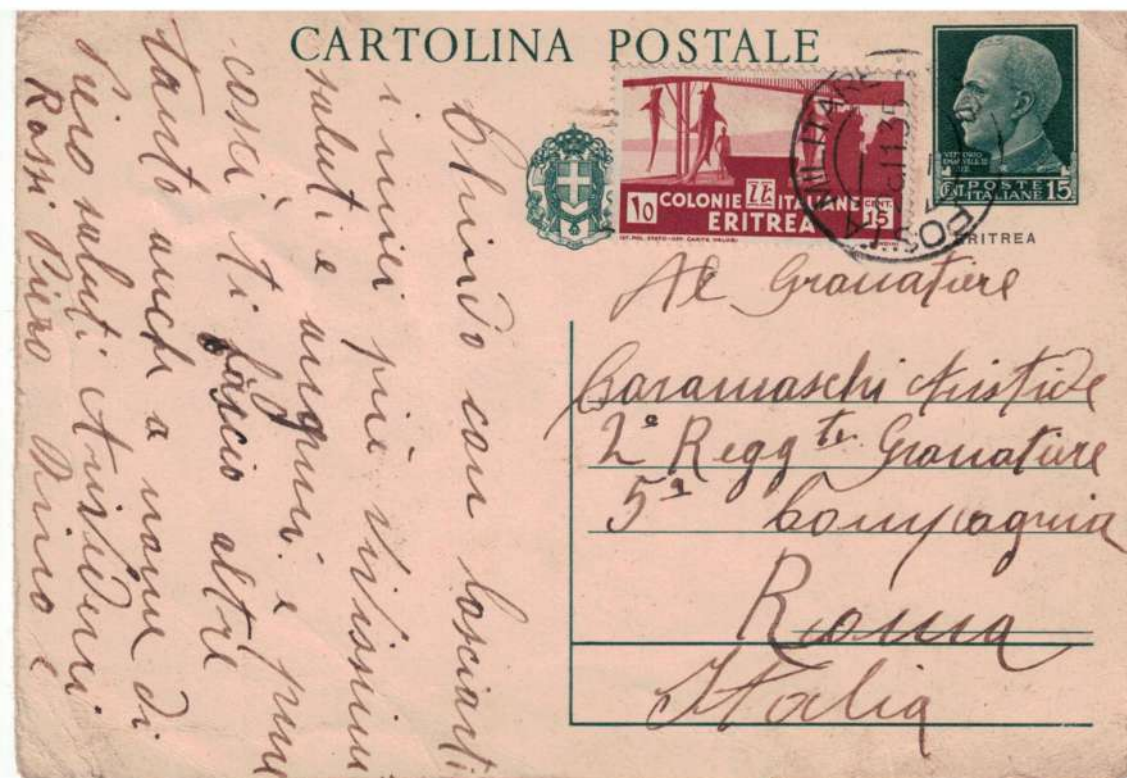 CARTOLINA POSTALE
10 COLONIE ITALIANE CENT. 15
ERITREA
IST. POL. STATO-OFF. CARTE VALORI
MILITARE
POS
VITTORIO
EMANUELE III
CENT. POSTE 15
ITALIANE
ERITREA
Al Granatiere
Caramaschi Aristide
2° Reggto Granatiere
5a Compagnia
Roma
Italia
Chiudo con lasciarti
i miei più vivissimi
saluti e auguri e pure
cosi ti fascio altre
tanto anche a nome di
Piero saluti Arrivederci
Rossi Piero Nino e